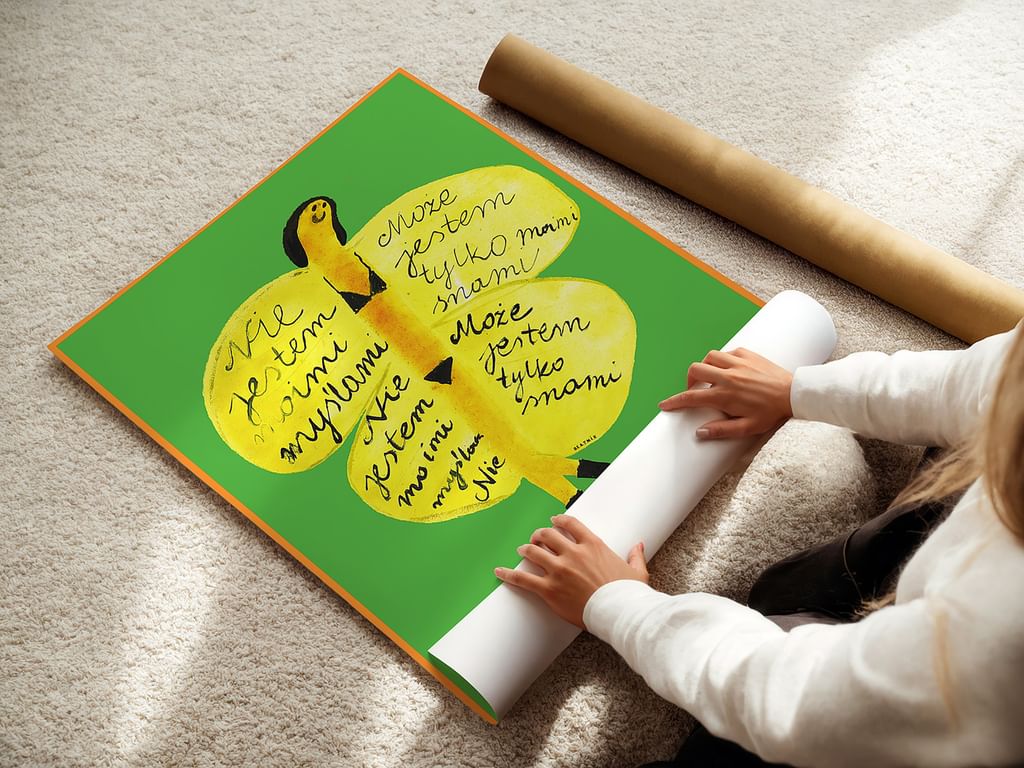 Nie
jestem
moimi
myślami
Nie
jestem
moimi
myślami
Nie
Może
jestem
tylko moimi
snami
Może
jestem
tylko
snami